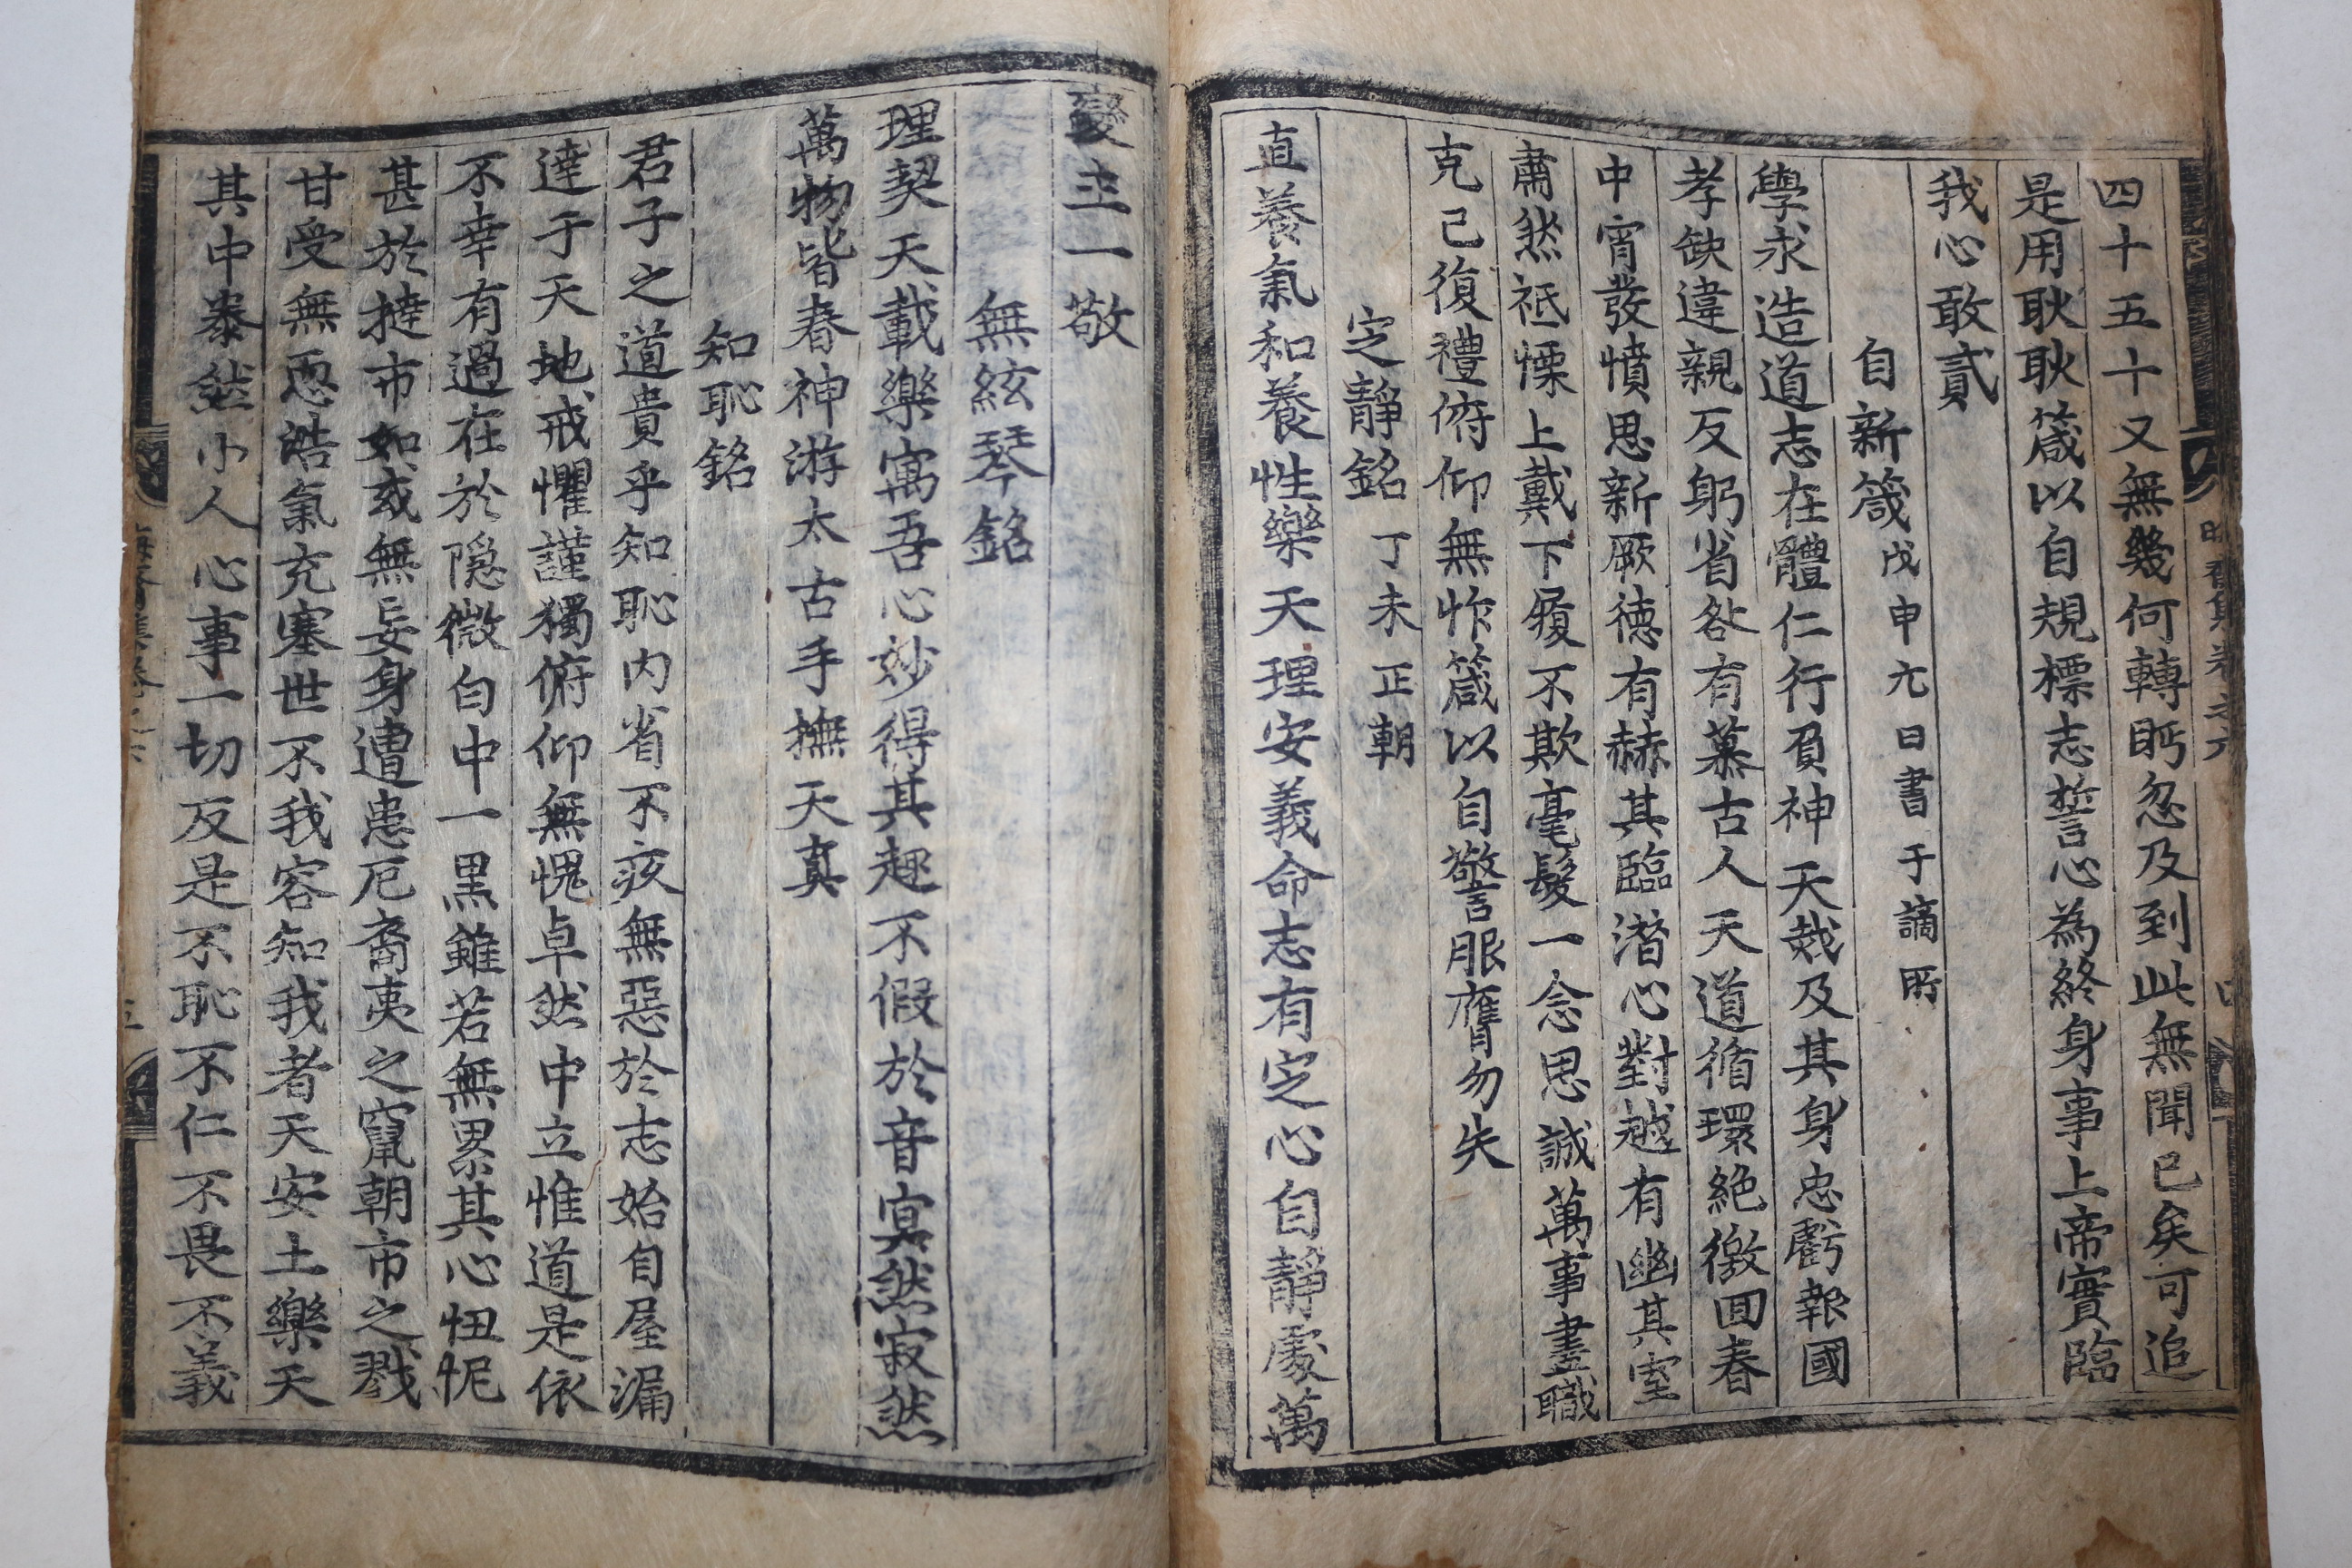 四十五十又無幾何轉眄忽及到此無聞已矣可追
是用耿耿箴以自規標志誓心為終身事上帝實臨
我心敢貳
自新箴戊申元日書于謫所
學求造道志在體仁行負神天烖及其身忠虧報國
孝缺違親反躬省咎有慕古人天道循環絶徼回春
中宵發憤思新厥德有赫其臨潛心對越有幽其室
肅然祗慄上戴下履不欺毫髮一念思誠萬事盡職
克己復禮俯仰無怍箴以自警服膺勿失
定靜銘丁未正朝
直養氣和養性樂天理安義命志有定心自靜處萬
變主一敬
無絃琴銘
理契天載樂寓吾心妙得其趣不假於音寞然寂然
萬物皆春神游太古手撫天真
知恥銘
君子之道貴乎知恥内省不疚無惡於志始自屋漏
達于天地戒懼謹獨俯仰無愧卓然中立惟道是依
不幸有過在於隱微白中一黒雖若無累其心忸怩
甚於撻市如或無妄身遭患厄裔夷之竄朝市之戮
甘受無恧浩氣充塞世不我容知我者天安土樂天
其中泰然小人心事一切反是不恥不仁不畏不義
晦齋集卷之六